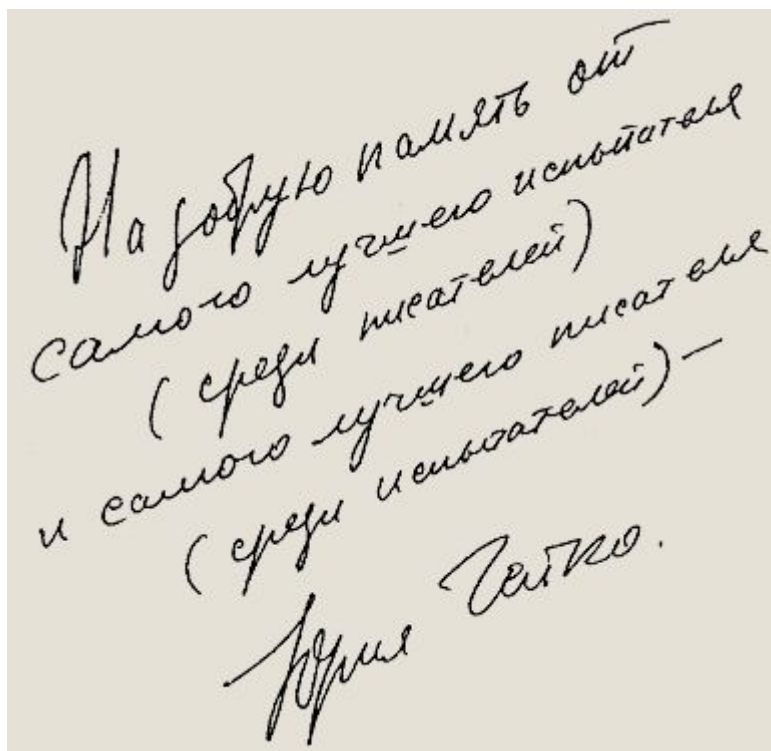 На добрую память от
самого лучшего испытателя
(среди писателей)
и самого лучшего писателя
(среди испытателей) —
Юрия Гейко.